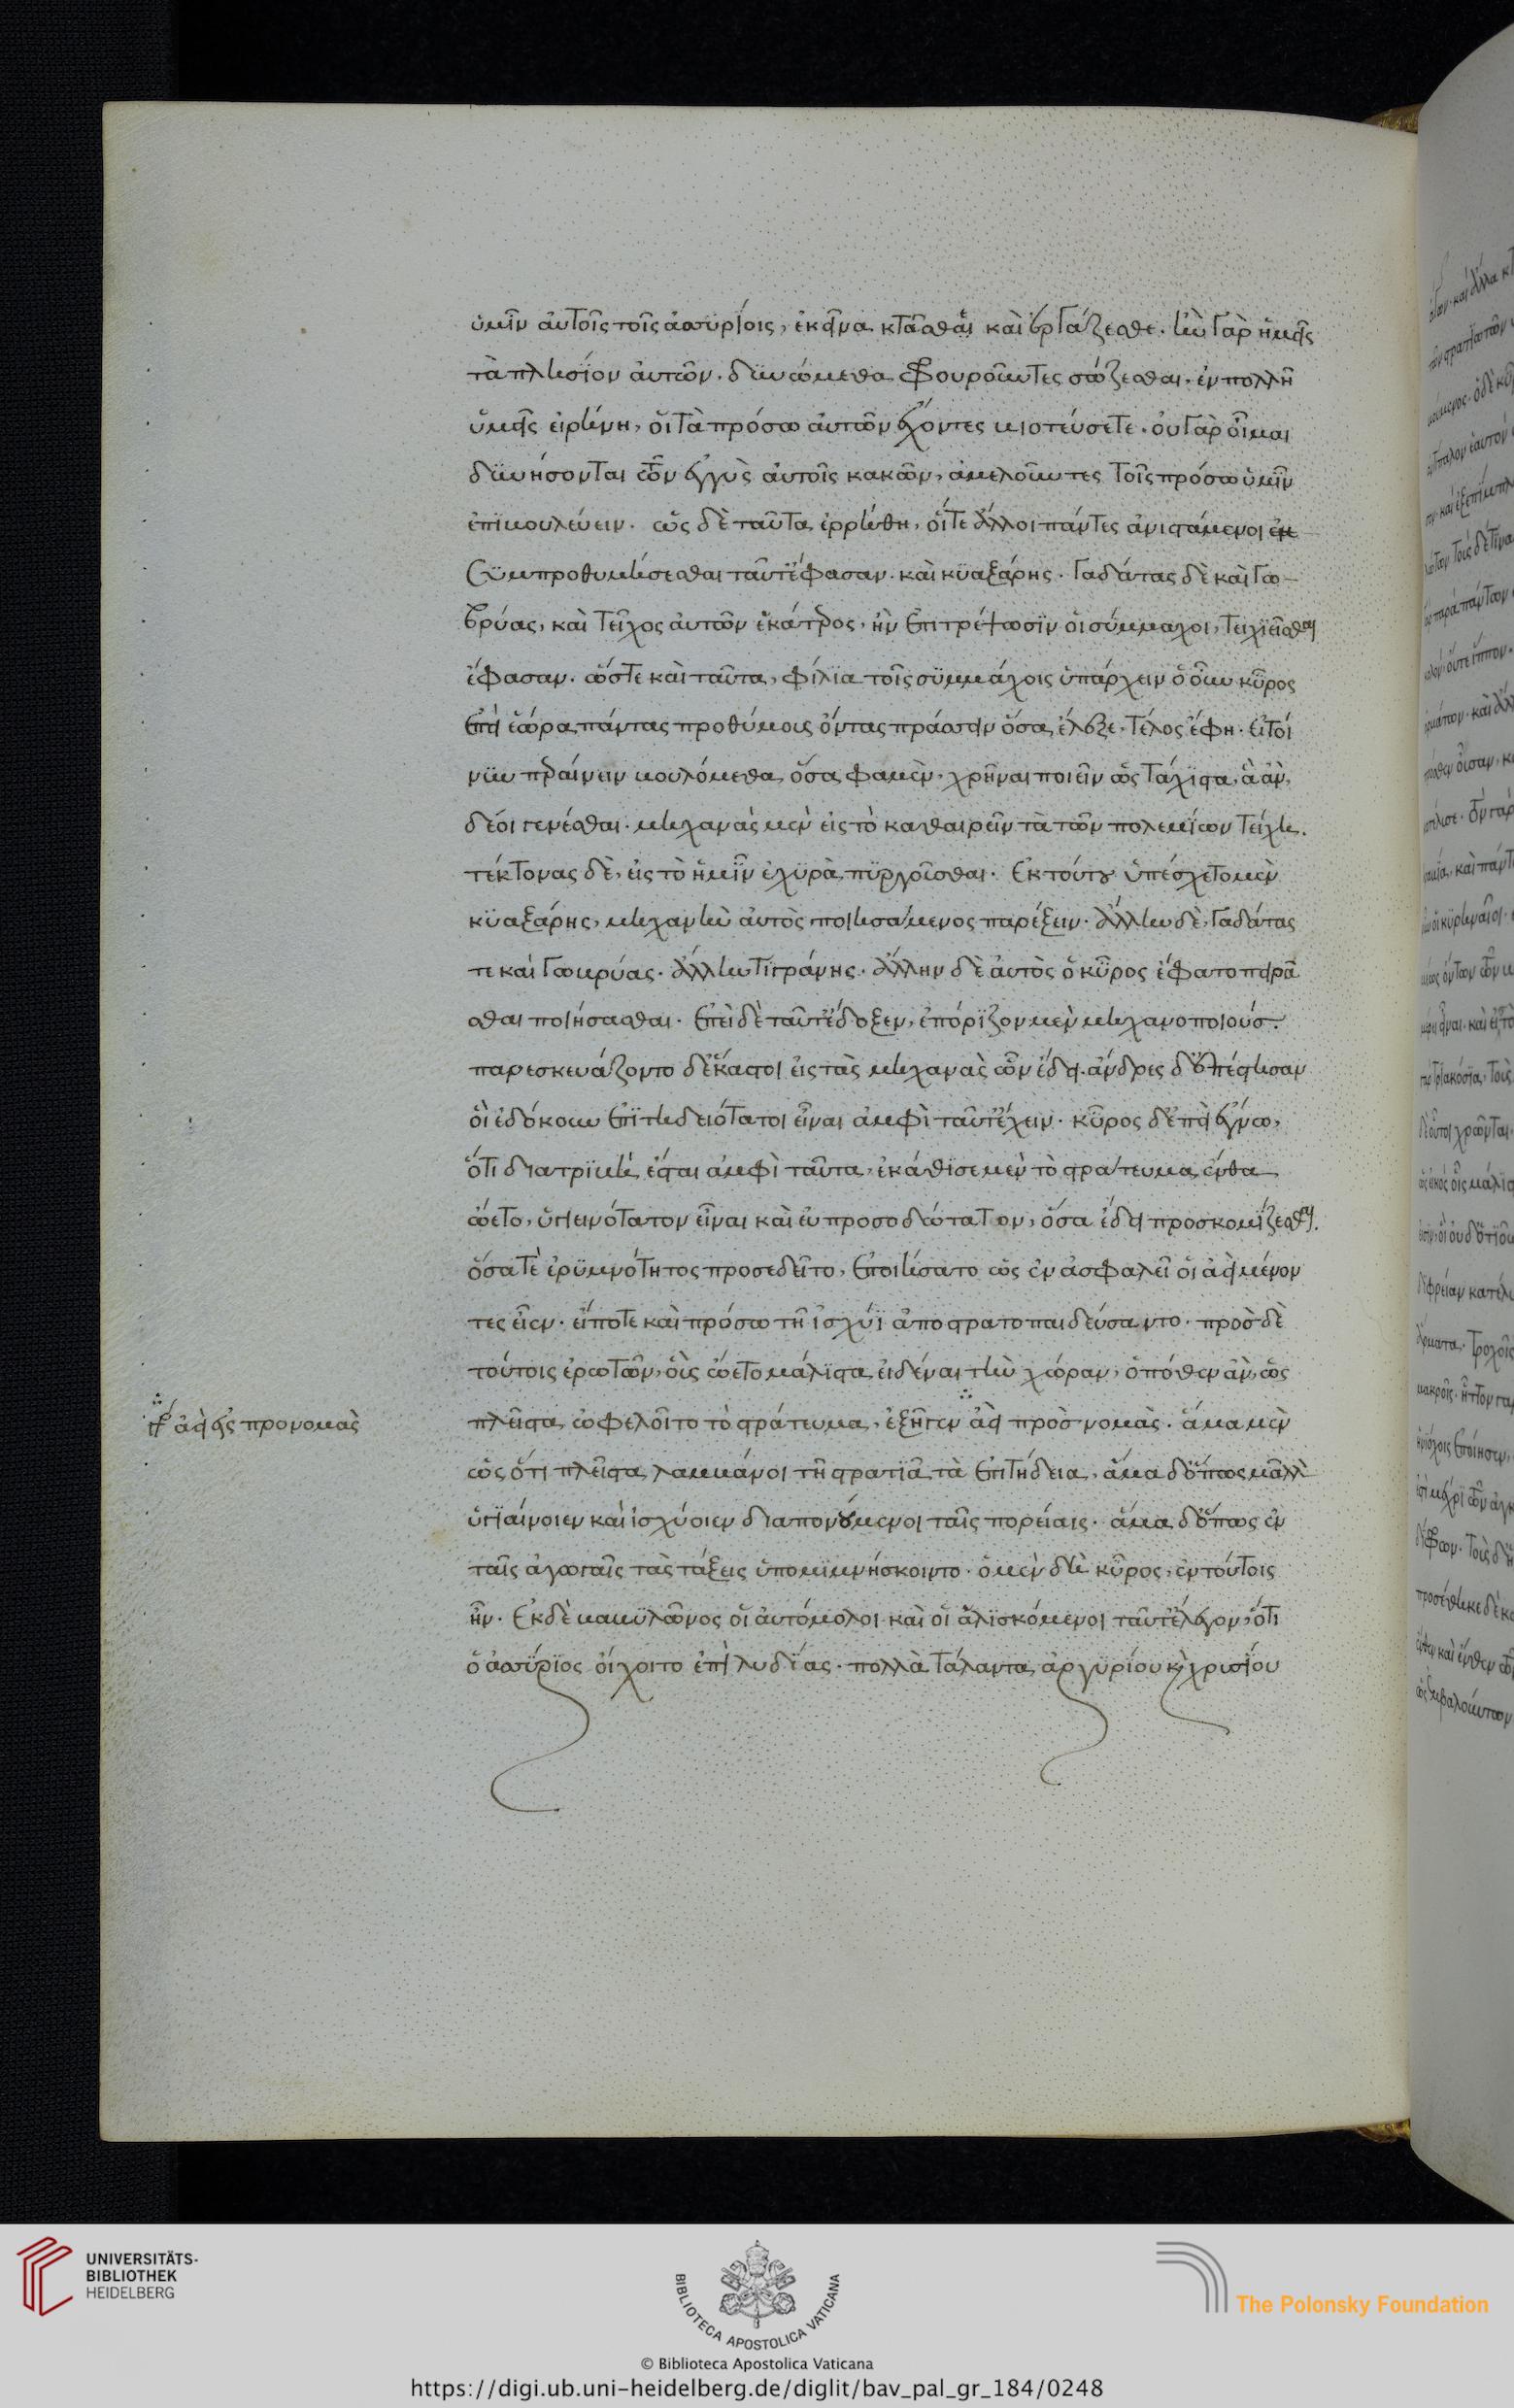 ὑμῖν αὐτοῖς τοῖς ἀσσυρίοις, ἐκεῖνα κτᾶσθαι καὶ ἐργάζεσθε. ἢν γὰρ ἡμεῖς
τὰ πλησίον αὐτῶν. δυνώμεθα φρουροῦντες σώζεσθαι. ἐν πολλῇ
ὑμεῖς εἰρήνη, οἱ τὰ πρόσω αὐτῶν ἔχοντες βιοτεύσετε. οὐ γὰρ οἶμαι
δυνήσονται τῶν ἐγγὺς αὐτοῖς κακῶν, ἀμελοῦντες τοῖς πρόσω ὑμῖν
ἐπιβουλεύειν. ὡς δὲ ταῦτα ἐρρήθη, οἵ τε ἄλλοι πάντες ἀνιστάμενοι
συμπροθυμήσεσθαι ταῦτ' ἔφασαν. καὶ κυαξάρης. γαδάτας δὲ καὶ γω-
βρύας, καὶ τεῖχος αὐτῶν ἑκάτερος, ἢν ἐπιτρέψωσιν οἱ σύμμαχοι, τειχιεῖσθαι
ἔφασαν. ὥστε καὶ ταῦτα, φίλια τοῖς συμμάχοις ὑπάρχειν ὁ οὖν κῦρος
ἐπεὶ ἑώρα πάντας προθύμους ὄντας πράσσειν ὅσα ἔλεξε. τέλος ἔφη. εἰ τοί
νυν περαίνειν βουλόμεθα ὅσα φαμὲν. χρῆναι ποιεῖν ὡς τάχιστα, ἃ ἂν,
δέοι γενέσθαι. μηχανὰς μὲν εἰς τὸ καθαιρεῖν τὰ τῶν πολεμίων τείχη.
τέκτονας δὲ, εἰς τὸ ἡμῖν ἐχυρὰ πυργοῦσθαι. ἐκ τούτου ὑπέσχετο μὲν
κυαξάρης, μηχανὴν αὐτὸς ποιησάμενος παρέξειν. ἄλλην δὲ, γαδάτας
τε καὶ γωβρύας. ἄλλην τιγράνης. ἄλλην δὲ αὐτὸς ὁ κῦρος ἔφατο πειρᾶ
σθαι ποιήσασθαι. ἐπεὶ δὲ ταῦτ' ἔδοξεν, ἐπόριζον μὲν μηχανοποιούς.
παρεσκευάζοντο δ' ἕκαστοι εἰς τὰς μηχανὰς ὧν ἔδει. ἄνδρες δ' ἐπέστησαν
οἳ ἐδόκουν ἐπιτηδειότατοι εἶναι ἀμφὶ ταῦτ' ἔχειν. κῦρος δ' ἐπεὶ ἔγνω,
ὅτι διατριβὴ ἔσται ἀμφὶ ταῦτα, ἐκάθισε μὲν τὸ στράτευμα ἔνθα
ὤετο, ὑγιεινότατον εἶναι καὶ εὐπροσοδώτατον, ὅσα ἔδει προσκομίζεσθαι.
ὅσα τὲ ἐρυμνότητος προσεδεῖτο, ἐποιήσατο ὡς ἐν ἀσφαλεῖ οἱ ἀεὶ μένον
τες εἶεν. εἴποτε καὶ πρόσω τῇ ἰσχύϊ ἀποστρατοπαιδεύσαντο. πρὸς δὲ
τούτοις ἐρωτῶν, οὓς ὤετο μάλιστα εἰδέναι τὴν χώραν, ὁπόθεν ἂν, ὡς
πλεῖστα ὠφελοῖτο τὸ στράτευμα, ἐξῆγεν ἀεὶ προς νομὰς. ἅμα μὲν
γρ ἀεὶ εἰς προνομὰς
ὡς ὅτι πλεῖστα λαμβάνοι τῇ στρατιᾷ τὰ ἐπιτήδεια, ἅμα δ' ὅπως μᾶλλον
ὑγιαίνοιεν καὶ ἰσχύοιεν διαπονούμενοι ταῖς πορείαις. ἅμα δ' ὅπως ἐν
ταῖς ἀγωγαῖς τὰς τάξεις ὑπομιμνήσκοιντο. ὁ μὲν δὴ κῦρος, ἐν τούτοις
ἦν. ἐκ δὲ βαβυλῶνος οἱ αὐτόμολοι καὶ οἱ ἁλισκόμενοι ταῦτ' ἔλεγον, ὅτι
ὁ ἀσσύριος οἴχοιτο ἐπὶ λυδίας. πολλὰ τάλαντα ἀργυρίου καὶ χρυσίου
UNIVERSITÄTS-
BIBLIOTHEK
HEIDELBERG
BIBLIOTECA APOSTOLICA VATICANA
The Polonsky Foundation
© Biblioteca Apostolica Vaticana
https://digi.ub.uni-heidelberg.de/diglit/bav_pal_gr_184/0248